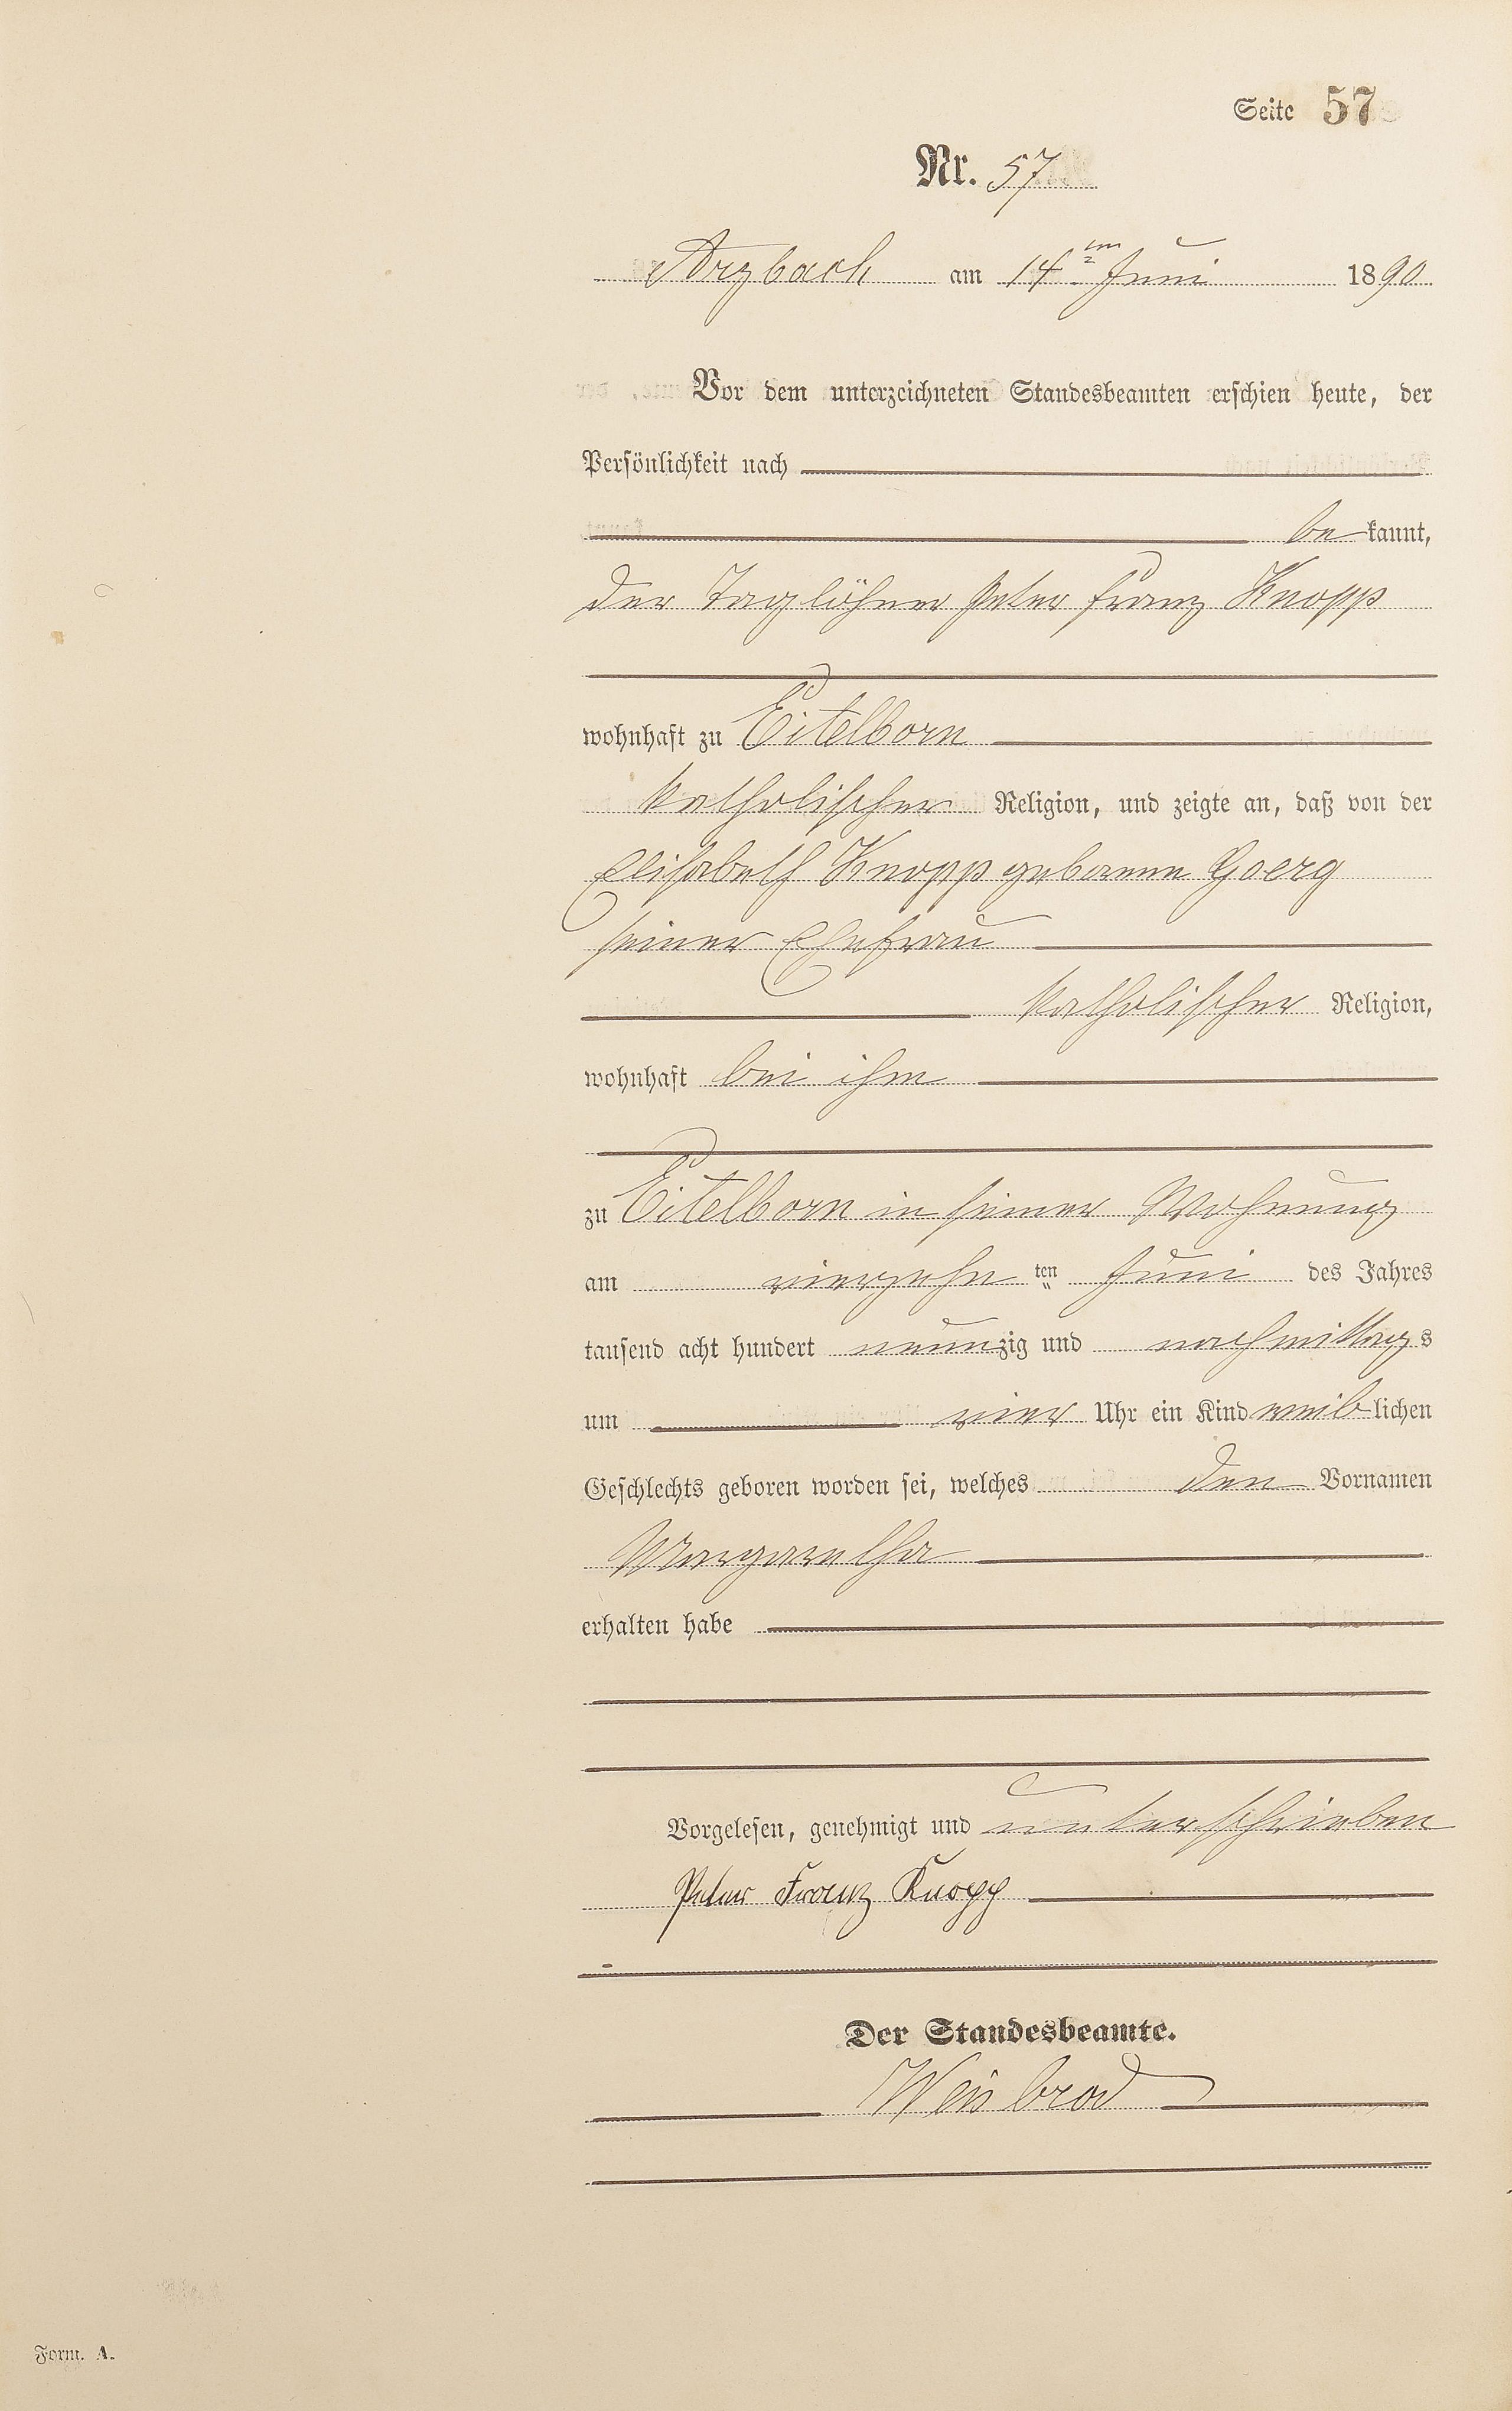 Seite 57
Nr. 57
Arzbach am 14ten Juni 1890
Vor dem unterzeichneten Standesbeamten erschien heute, der
Persönlichkeit nach
bekannt,
der Taglöhner Peter Franz Knopp
wohnhaft zu Eitelborn
katholischer Religion, und zeigte an, daß von der
Elisabeth Knopp geborenen Goerg
seiner Ehefrau
katholischer Religion,
wohnhaft bei ihm
zu Eitelborn in seiner Wohnung
am vierzehn ten Juni des Jahres
tausend acht hundert neunzig und nachmittags
um vier Uhr ein Kind weiblichen
Geschlechts geboren worden sei, welches den Vornamen
Margaretha
erhalten habe
Vorgelesen, genehmigt und unterschrieben
Peter Franz Knopp
Der Standesbeamte.
Weisbrod
Form. A.